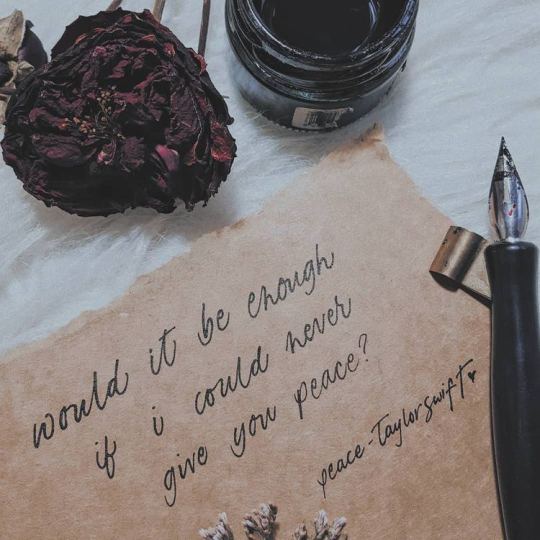 would it be enough
if i could never
give you peace?
peace - Taylor swift